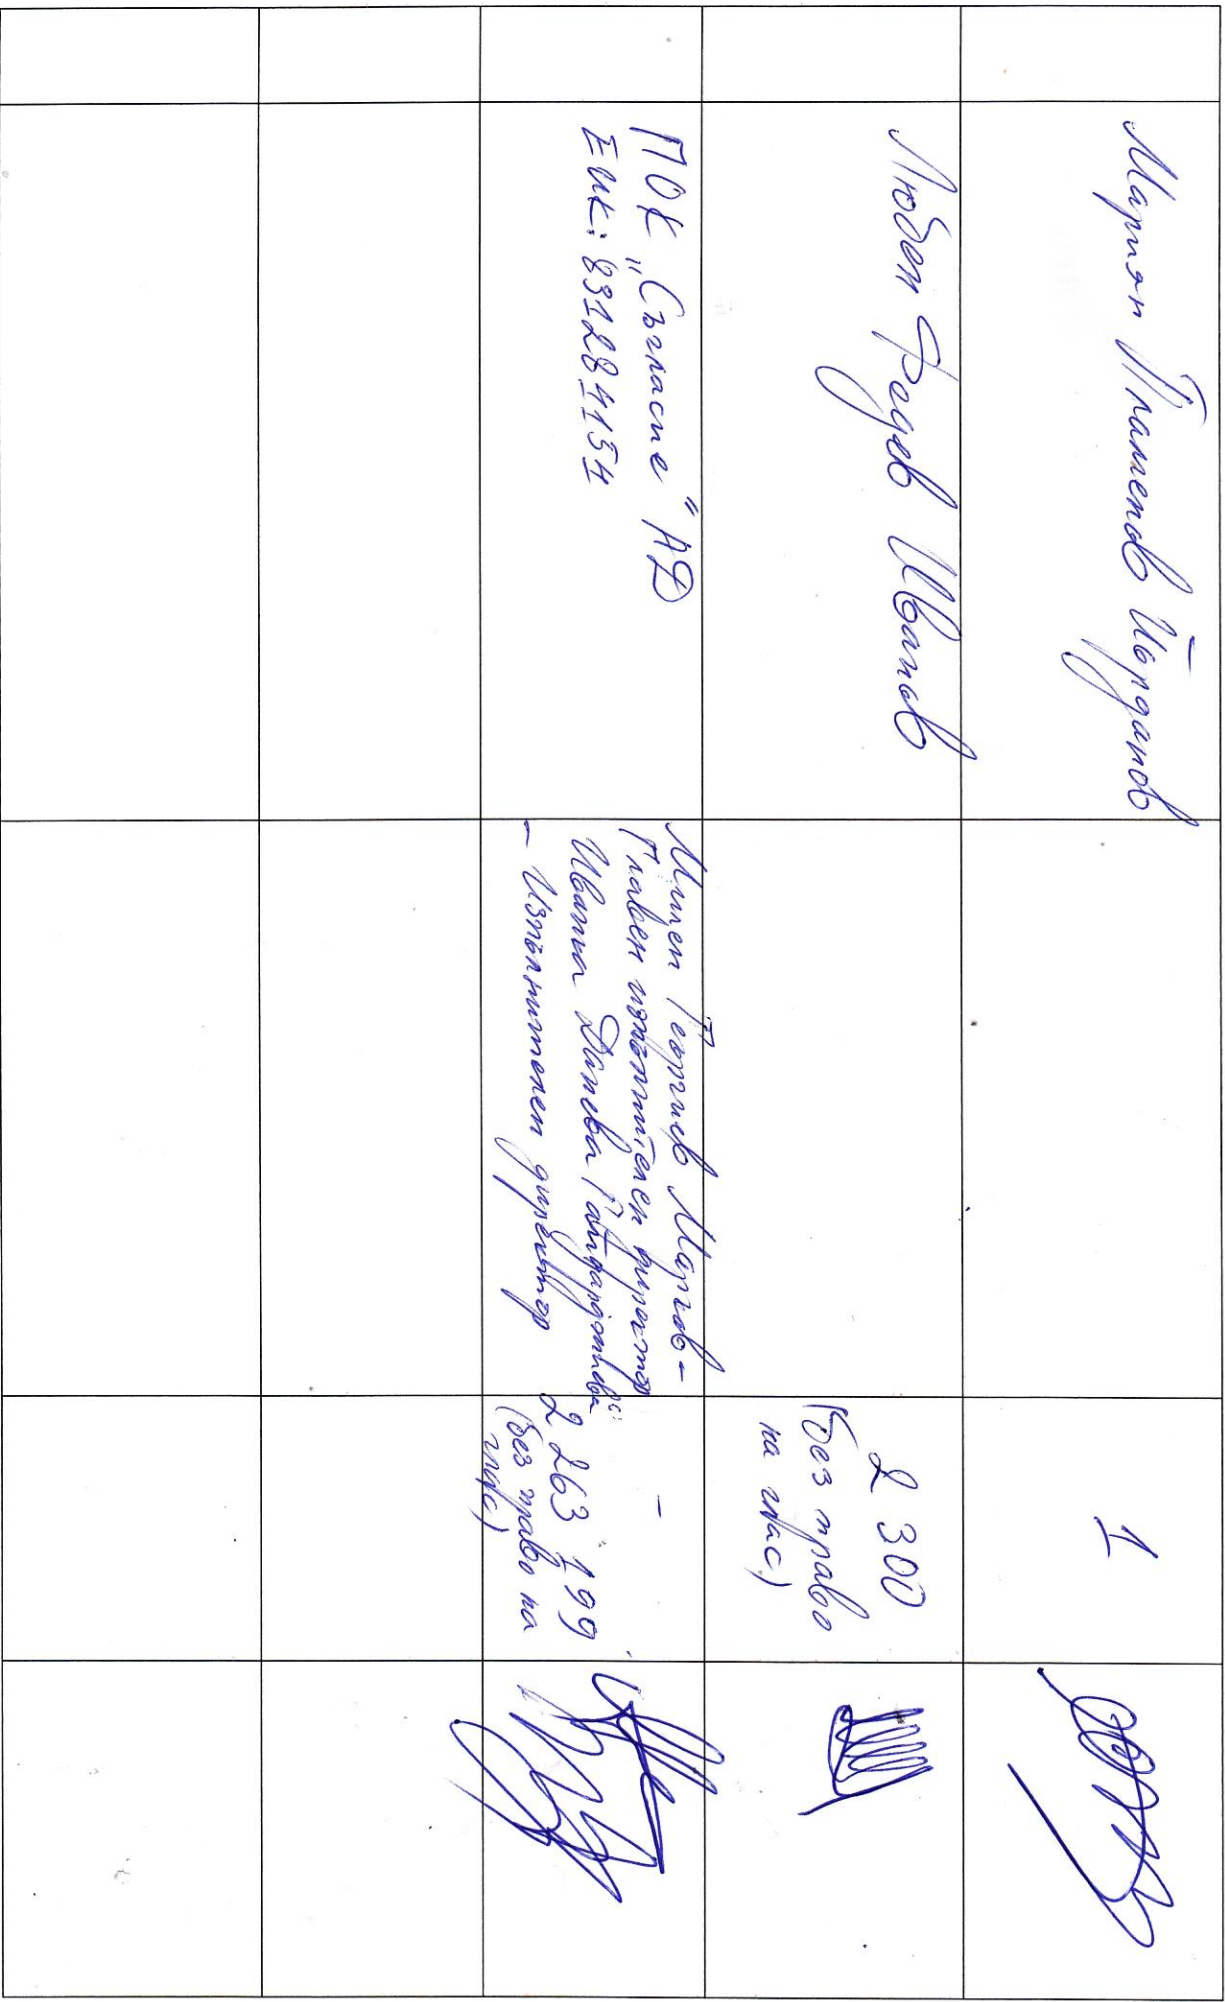 Мариян Пламенов Йорданов
1
Любен Фадев Иванов
2 300
(без право
на глас)
ПОК „Съгласие" АД
ЕИК: 831284154
Милен Георгиев Марков –
Главен изпълнителен директор
Иванка Данева
– Изпълнителен директор
–
2 263 199
(без право на
глас)